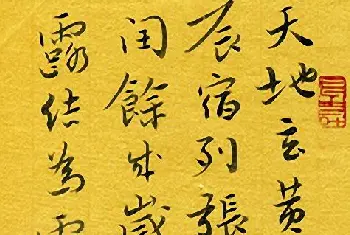 天地玄黄
辰宿列張
閏餘成歲
露結為